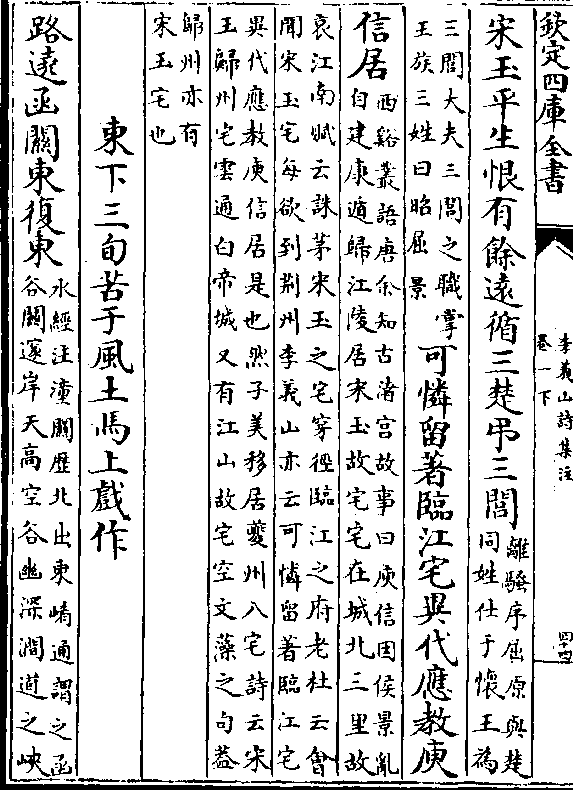 欽定四庫全書
李義山詩集注
卷一下
四十四
宋玉平生恨有餘遠循三楚弔三閭
離騷序屈原與楚
同姓仕于懷王為
三閭大夫三閭之職掌
王族三姓曰昭屈景
可憐留著臨江宅異代應教庾
信居
西谿叢語唐余知古渚宫故事曰庾信因侯景亂
自建康遁歸江陵居宋玉故宅宅在城北三里故
哀江南賦云誅茅宋玉之宅穿徑臨江之府老杜云曾
聞宋玉宅每欲到荆州李義山亦云可憐留著臨江宅
異代應教庾信居是也然子美移居夔州入宅詩云宋
玉歸州宅雲通白帝城又有江山故宅空文藻之句葢
歸州亦有
宋玉宅也
東下三旬苦于風土馬上戲作
路遠函關東復東
水經注潼關歷北出東崤通謂之函
谷關邃岸天高空谷幽深澗道之峽